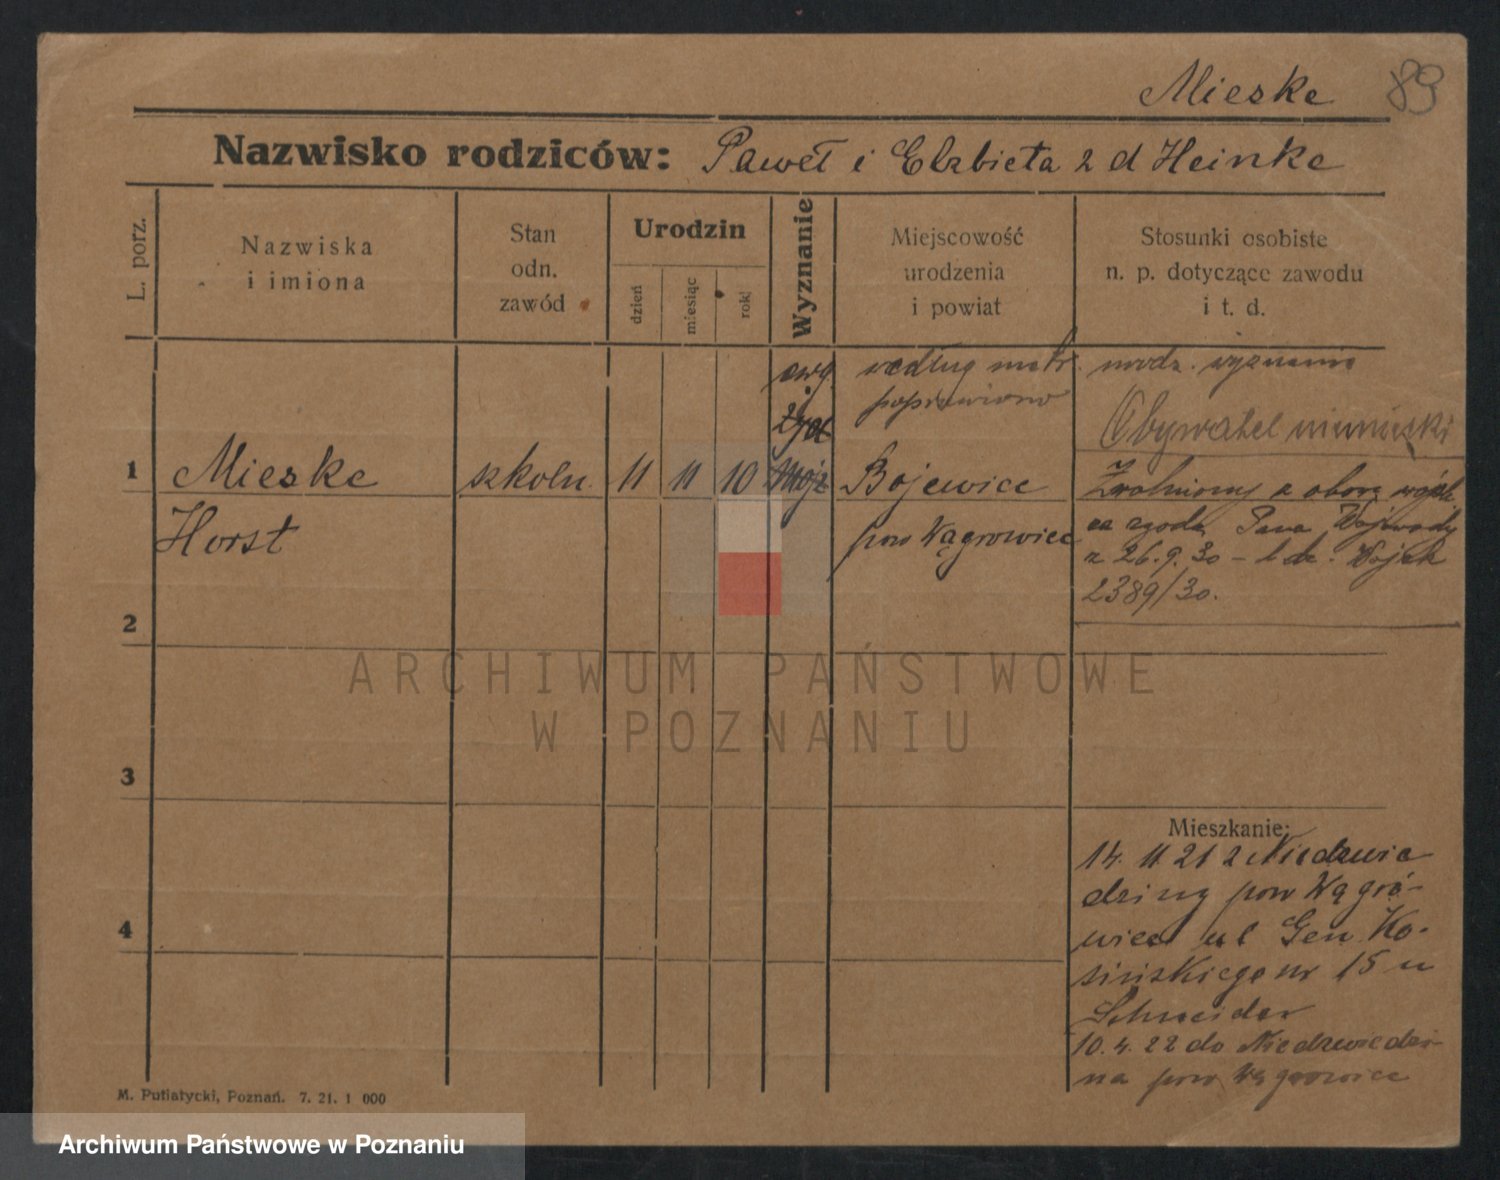 Mieske 89
Nazwisko rodziców: Paweł i Elzbieta z d Heinke
L. porz.
Nazwiska
i imiona
Stan
odn.
zawód
Urodzin
dzień
miesiąc
rok
Wyznanie
Miejscowość
urodzenia
i powiat
Stosunki osobiste
n. p. dotyczące zawodu
i t. d.
ewg. według metr. urodz. wyznanie
poprawiono
żyd
Obywatel niemiecki
1 Mieske szkoln. 11 11 10 mojż Bojewice
Zwolniony z obyw.
Horst pow Wągrowiec
za zgodą Pana Wojewody
z 26.9.30 – l. dz. Wojsk
2389/30.
2
3
4
ARCHIWUM PAŃSTWOWE
W POZNANIU
Mieszkanie:
14. 11 21 z Niedzwie
dziny pow Wągro-
wiec ul Gen Ko-
sińskiego nr 15 u
Schneider
10. 4. 22 do Niedzwiedzi-
na pow Wągrowiec
M. Putiatycki, Poznań. 7. 21. 1 000
Archiwum Państwowe w Poznaniu